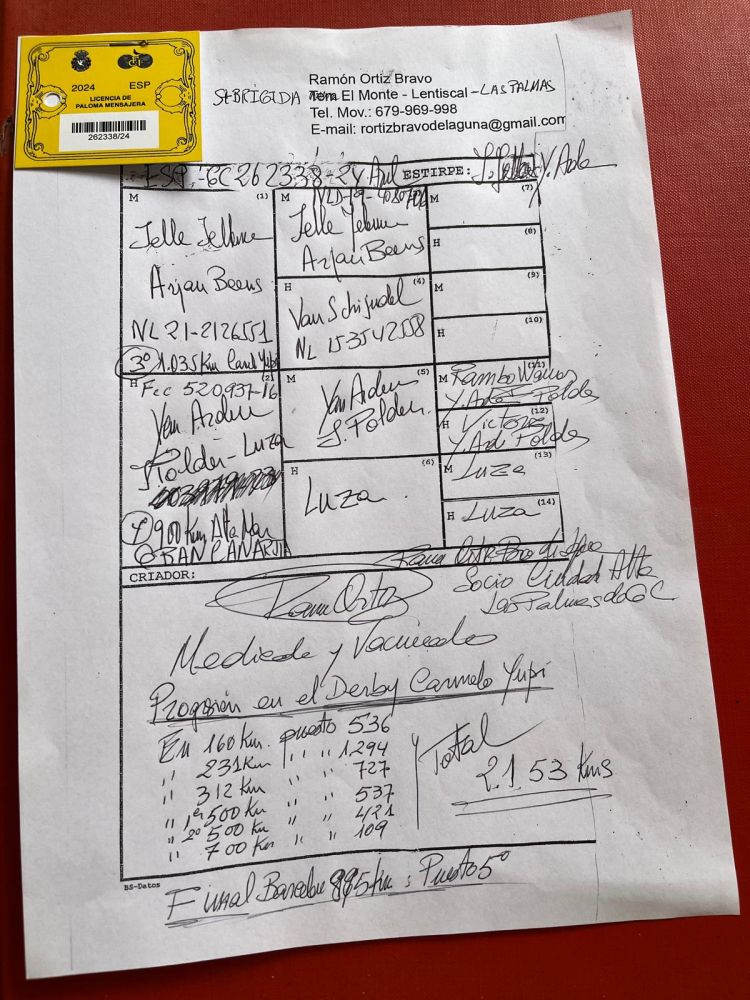 2024 ESP
LICENCIA DE
PALOMA MENSAJERA
262338/24
Ramón Ortiz Bravo
StBRIGIDA El Monte - Lentiscal -LAS PALMAS
Tel. Mov.: 679-969-998
E-mail: rortizbravodelaguna@gmail.com
ESP. GC 262338-24 Azul ESTIRPE:
M (1)
Jelle Jellema
Arjan Beens
NL 21-2126551
3º 1.035 Km Carmelo Yupi
H (2)
Fcc 520.937-16
Van Arden
Polder-Luza
1º 900 Km Alta Mar
GRAN CANARIA
M
Jelle Jellema
Arjan Beens
H (4)
Van Schijndel
NL 15-3542558
M (5)
Yan Arden
J. Polder.
H (6)
Luza
M (7)
H (8)
M (9)
H (10)
M (11)
Rambo
Polder
H (12)
Victoria
Polder
M (13)
Luza
H (14)
Luza
CRIADOR:
Ramón Ortiz
Socio Ciudad Alta
Las Palmas de G C
Medicado y Vacunado
Progresión en el Derby Carmelo Yupi
En 160 Km. puesto 536
" 231 Km " " 1294
" 312 Km " " 727
" 1er 500 Km " " 537
" 2º 500 Km " " 421
" 700 Km " " 109
y Total
2.153 Kms
BS-Datos
Final 885 Km: Puesto 5º